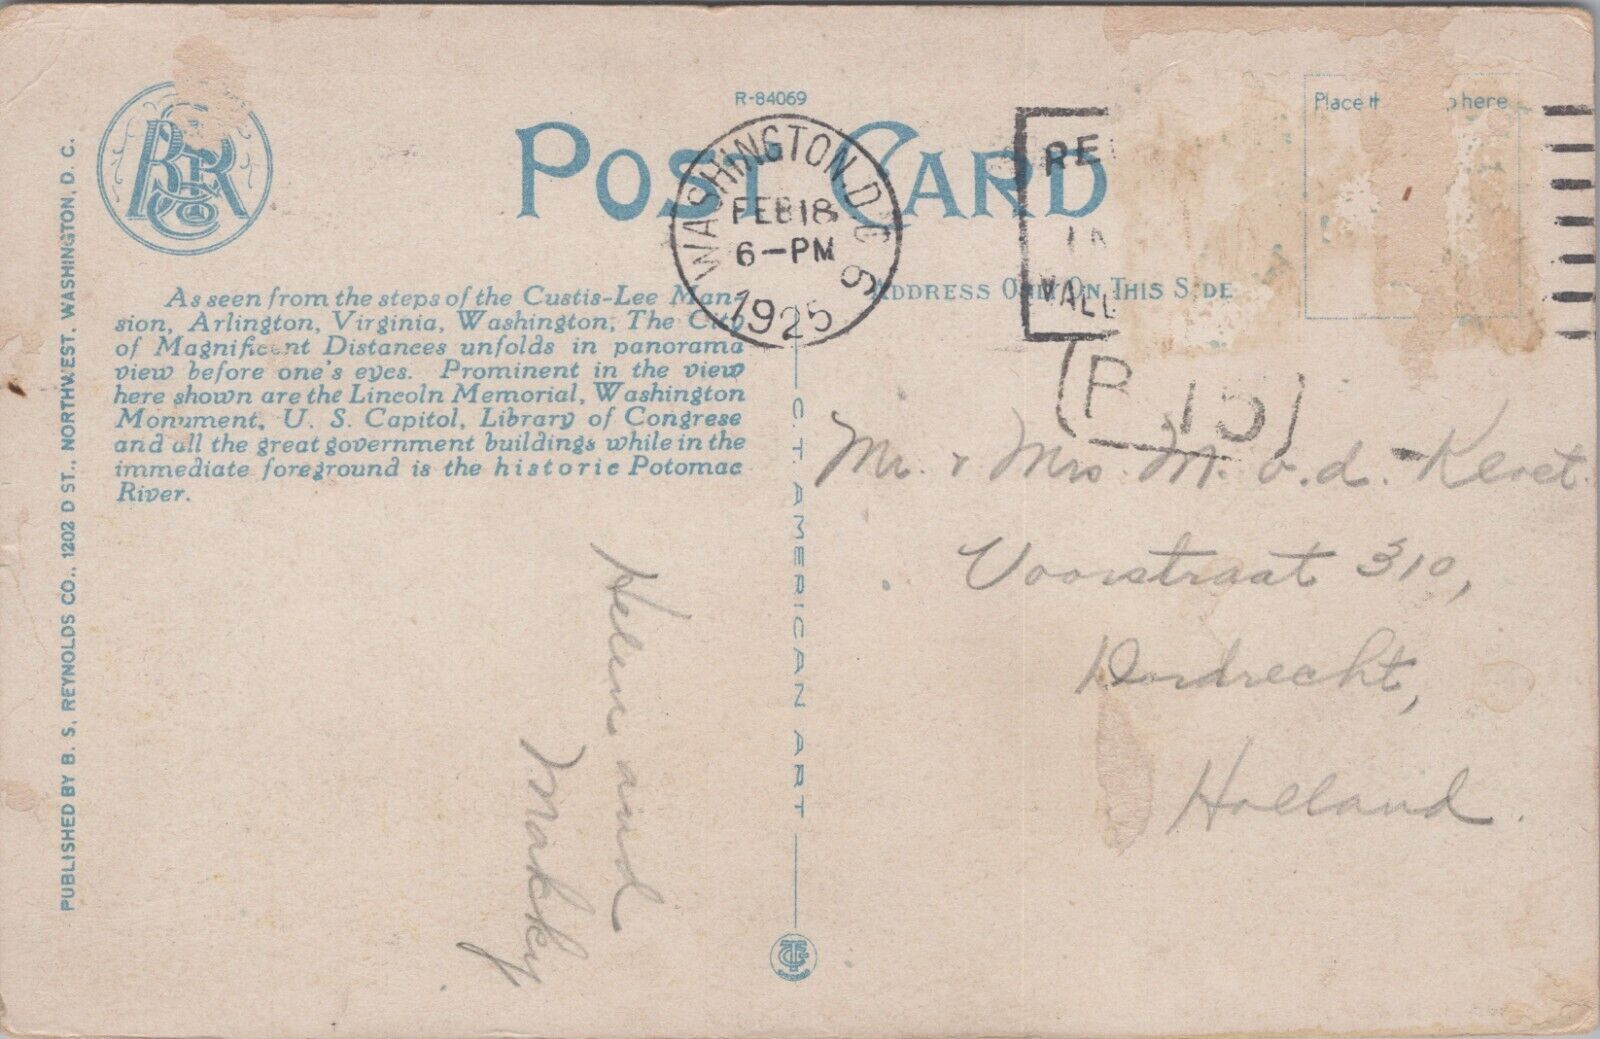 R-84069
POST CARD
BSR Co
Place here
WASHINGTON, D.C.
FEB 18
6-PM
1925
6
IN
ADDRESS ONLY ON THIS SIDE
As seen from the steps of the Custis-Lee Man-
sion, Arlington, Virginia, Washington, The City
of Magnificent Distances unfolds in panorama
view before one's eyes. Prominent in the view
here shown are the Lincoln Memorial, Washington
Monument, U. S. Capitol, Library of Congrese
and all the great government buildings while in the
immediate foreground is the historic Potomac
River.
PUBLISHED BY B. S. REYNOLDS CO., 1202 D ST., NORTHWEST, WASHINGTON, D. C.
C. T. AMERICAN ART
Helen and
Makky
Mr. & Mrs. M. v. d. Kleet.
Voorstraat 310,
Dordrecht,
Holland.